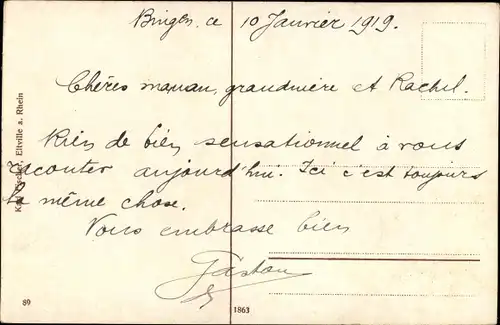 Bingen, le 10 Janvier 1919.
Chères maman, grandmère et Rachel.
Rien de bien sensationnel à vous
raconter aujourd'hui. Ici c'est toujours
la même chose.
Vous embrasse bien
Gaston
Eltville a. Rhein
89
1863